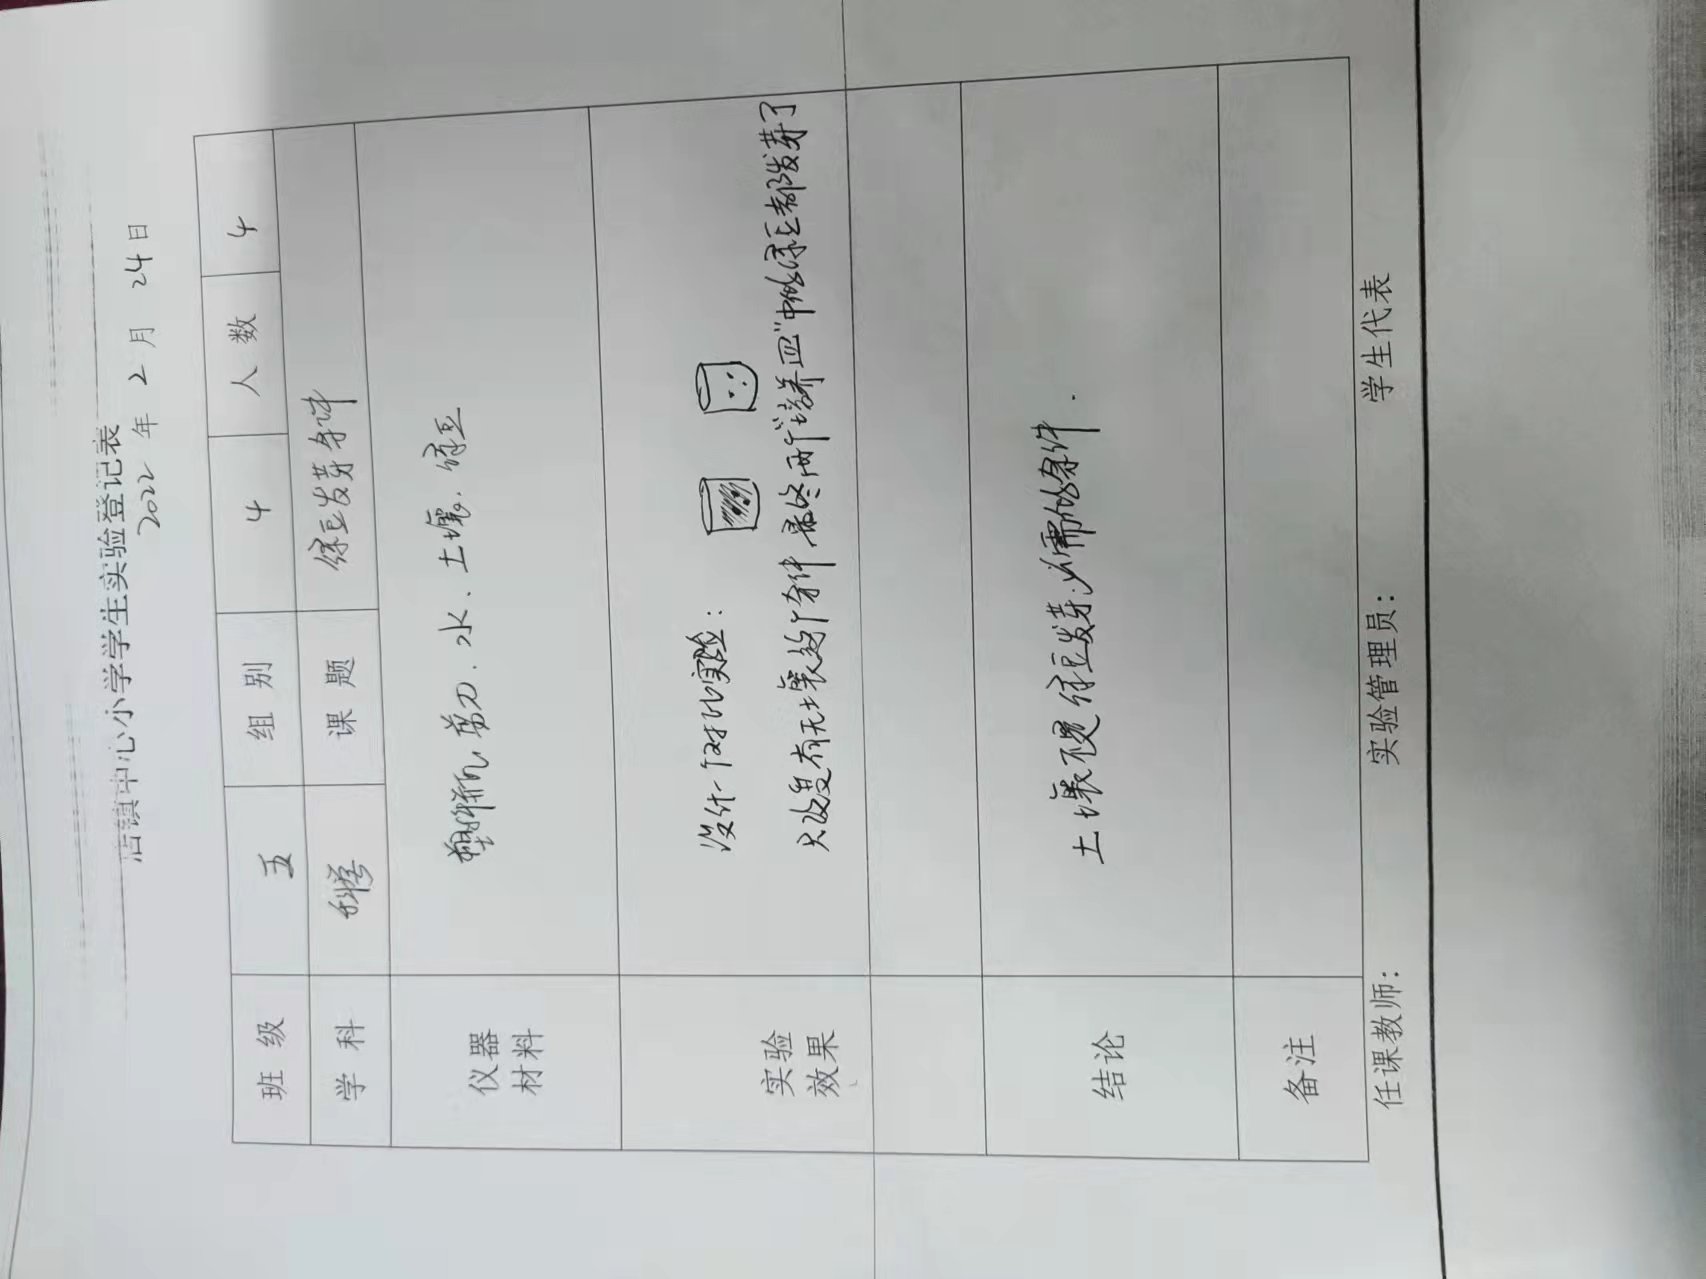 店镇中心小学学生实验登记表
2022 年 2 月 24 日
班 级 五 组 别 4 人 数 4
学 科 科学 课 题 绿豆发芽条件
仪器材料 塑料瓶、剪刀、水、土壤、绿豆
实验效果 设计一个对比实验:
只改变有无土壤这个条件 最终两个"培养皿"中的绿豆都发芽了
结论 土壤不是绿豆发芽必需的条件.
备注
任课教师: 实验管理员: 学生代表